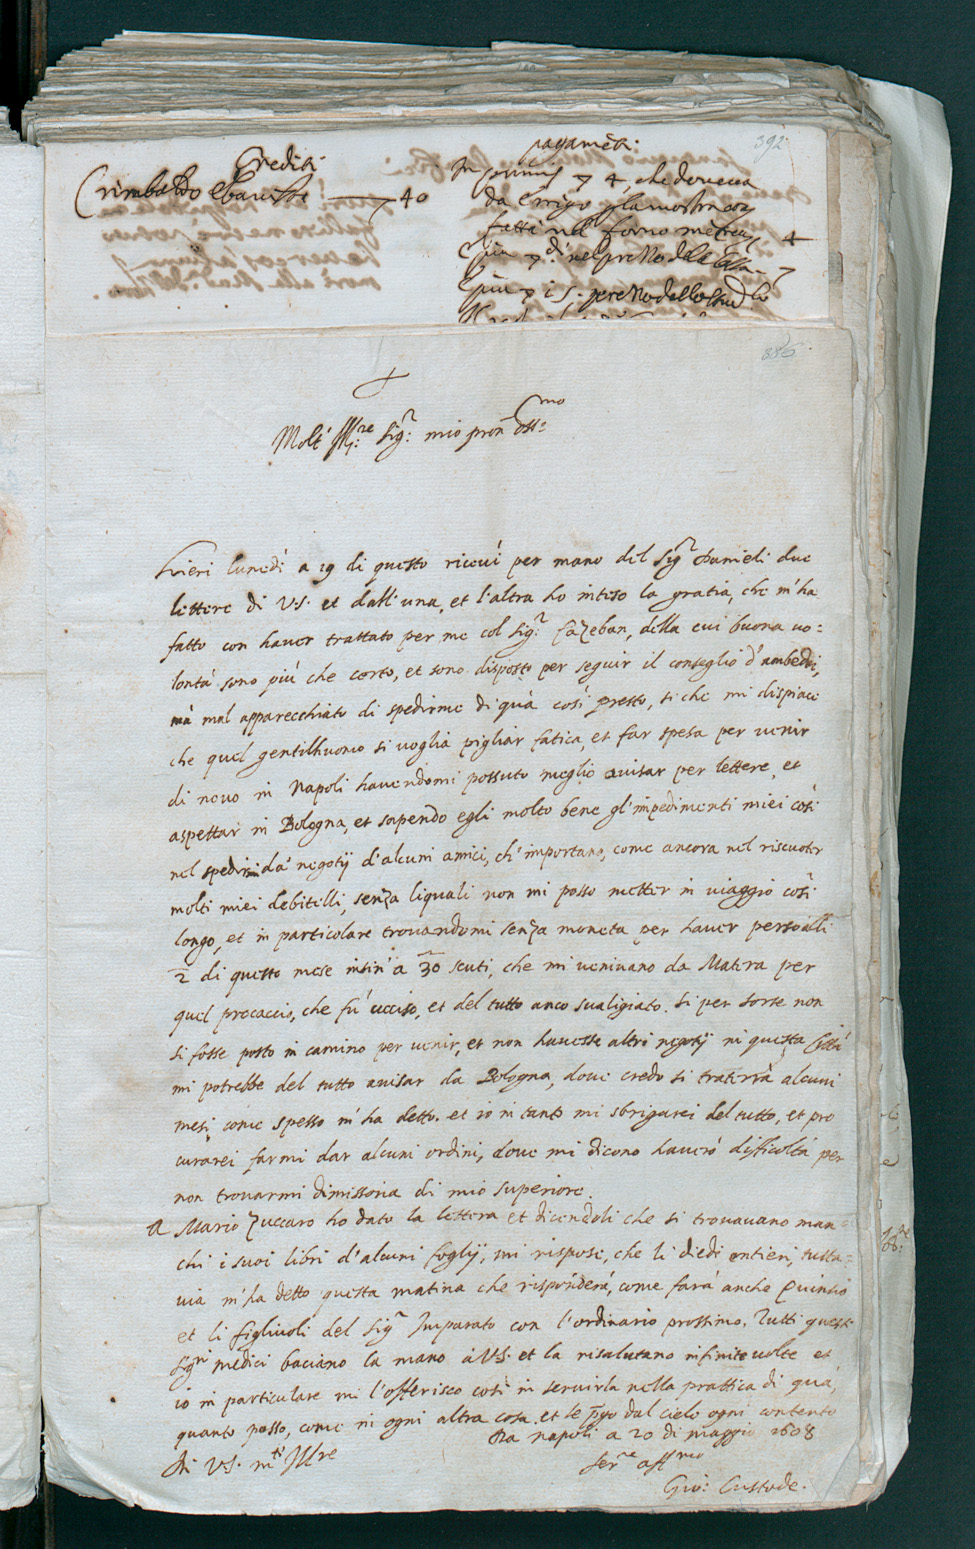 392
Crediti
Crimbaldo Ebanista 40
pagamēti:
In primis 4, che doveva
da Errigo p la mostra
fatta nel forno 4
Et piu
Et piu
386
Molt' Ill:re Sig:r mio pron oss:mo
Hieri lunedi a 19 di questo ricevei per mano del Sig:r Danieli due
lettere di V.S. et dall'una, et l'altra ho inteso la gratia, che m'ha
fatto con haver trattato per me col Sig:r Cazeban, della cui buona uo=
lontà sono più che certo, et sono disposto per seguir il conseglio d'ambedui,
mà mal apparecchiato di spedirme di quà così presto, si che mi dispiace
che quel gentilhuomo si voglia pigliar fatica, et far spesa per uenir
di novo in Napoli havendomi possuto meglio auisar per lettere, et
aspettar in Bologna, et sapendo egli molto bene gl'impedimenti miei così
nel spedirmi da' negotij d'alcuni amici, ch'importano, come ancora nel riscuoter
molti miei debitelli, senza liquali non mi posso metter in uiaggio così
longo, et in particolare trouandomi senza moneta per haver perso alli
2 di questo mese insin' a 30 scuti, che mi ueniuano da Matera per
quel procaccio, che fù ucciso, et del tutto anco sualigiato. Si per sorte non
si fosse posto in camino per uenir, et non hauesse altri negotij in questa Città
mi potrebbe del tutto auisar da Bologna, doue credo si traterrà alcuni
mesi, come spesso m'ha detto. et io in tanto mi sbrigarei del tutto, et pro
curarei farmi dar alcuni ordini, doue mi dicono hauerò difficoltà per
non trouarmi dimissoria di mio superiore.
A Mario Zuccaro ho dato la lettera et dicendoli che si trouauano man=
chi i suoi libri d'alcuni foglij, mi rispose, che li diedi entieri, tutta=
uia m'ha detto questa matina che risponderà, come farà anche Quintio
et li figliuoli del Sig:r Imparato con l'ordinario prossimo. Tutti questi
Sig:ri medici baciano la mano à V.S. et la risalutano infinite uolte et
io in particulare mi l'offerisco così in seruirla nella prattica di quà,
quanto posso, come in ogni altra cosa, et le p̄go dal cielo ogni contento
Da Napoli a 20 di maggio 1608
Di V.S. m:to Ill:re
Ser:re aff:mo
Gio: Custode.